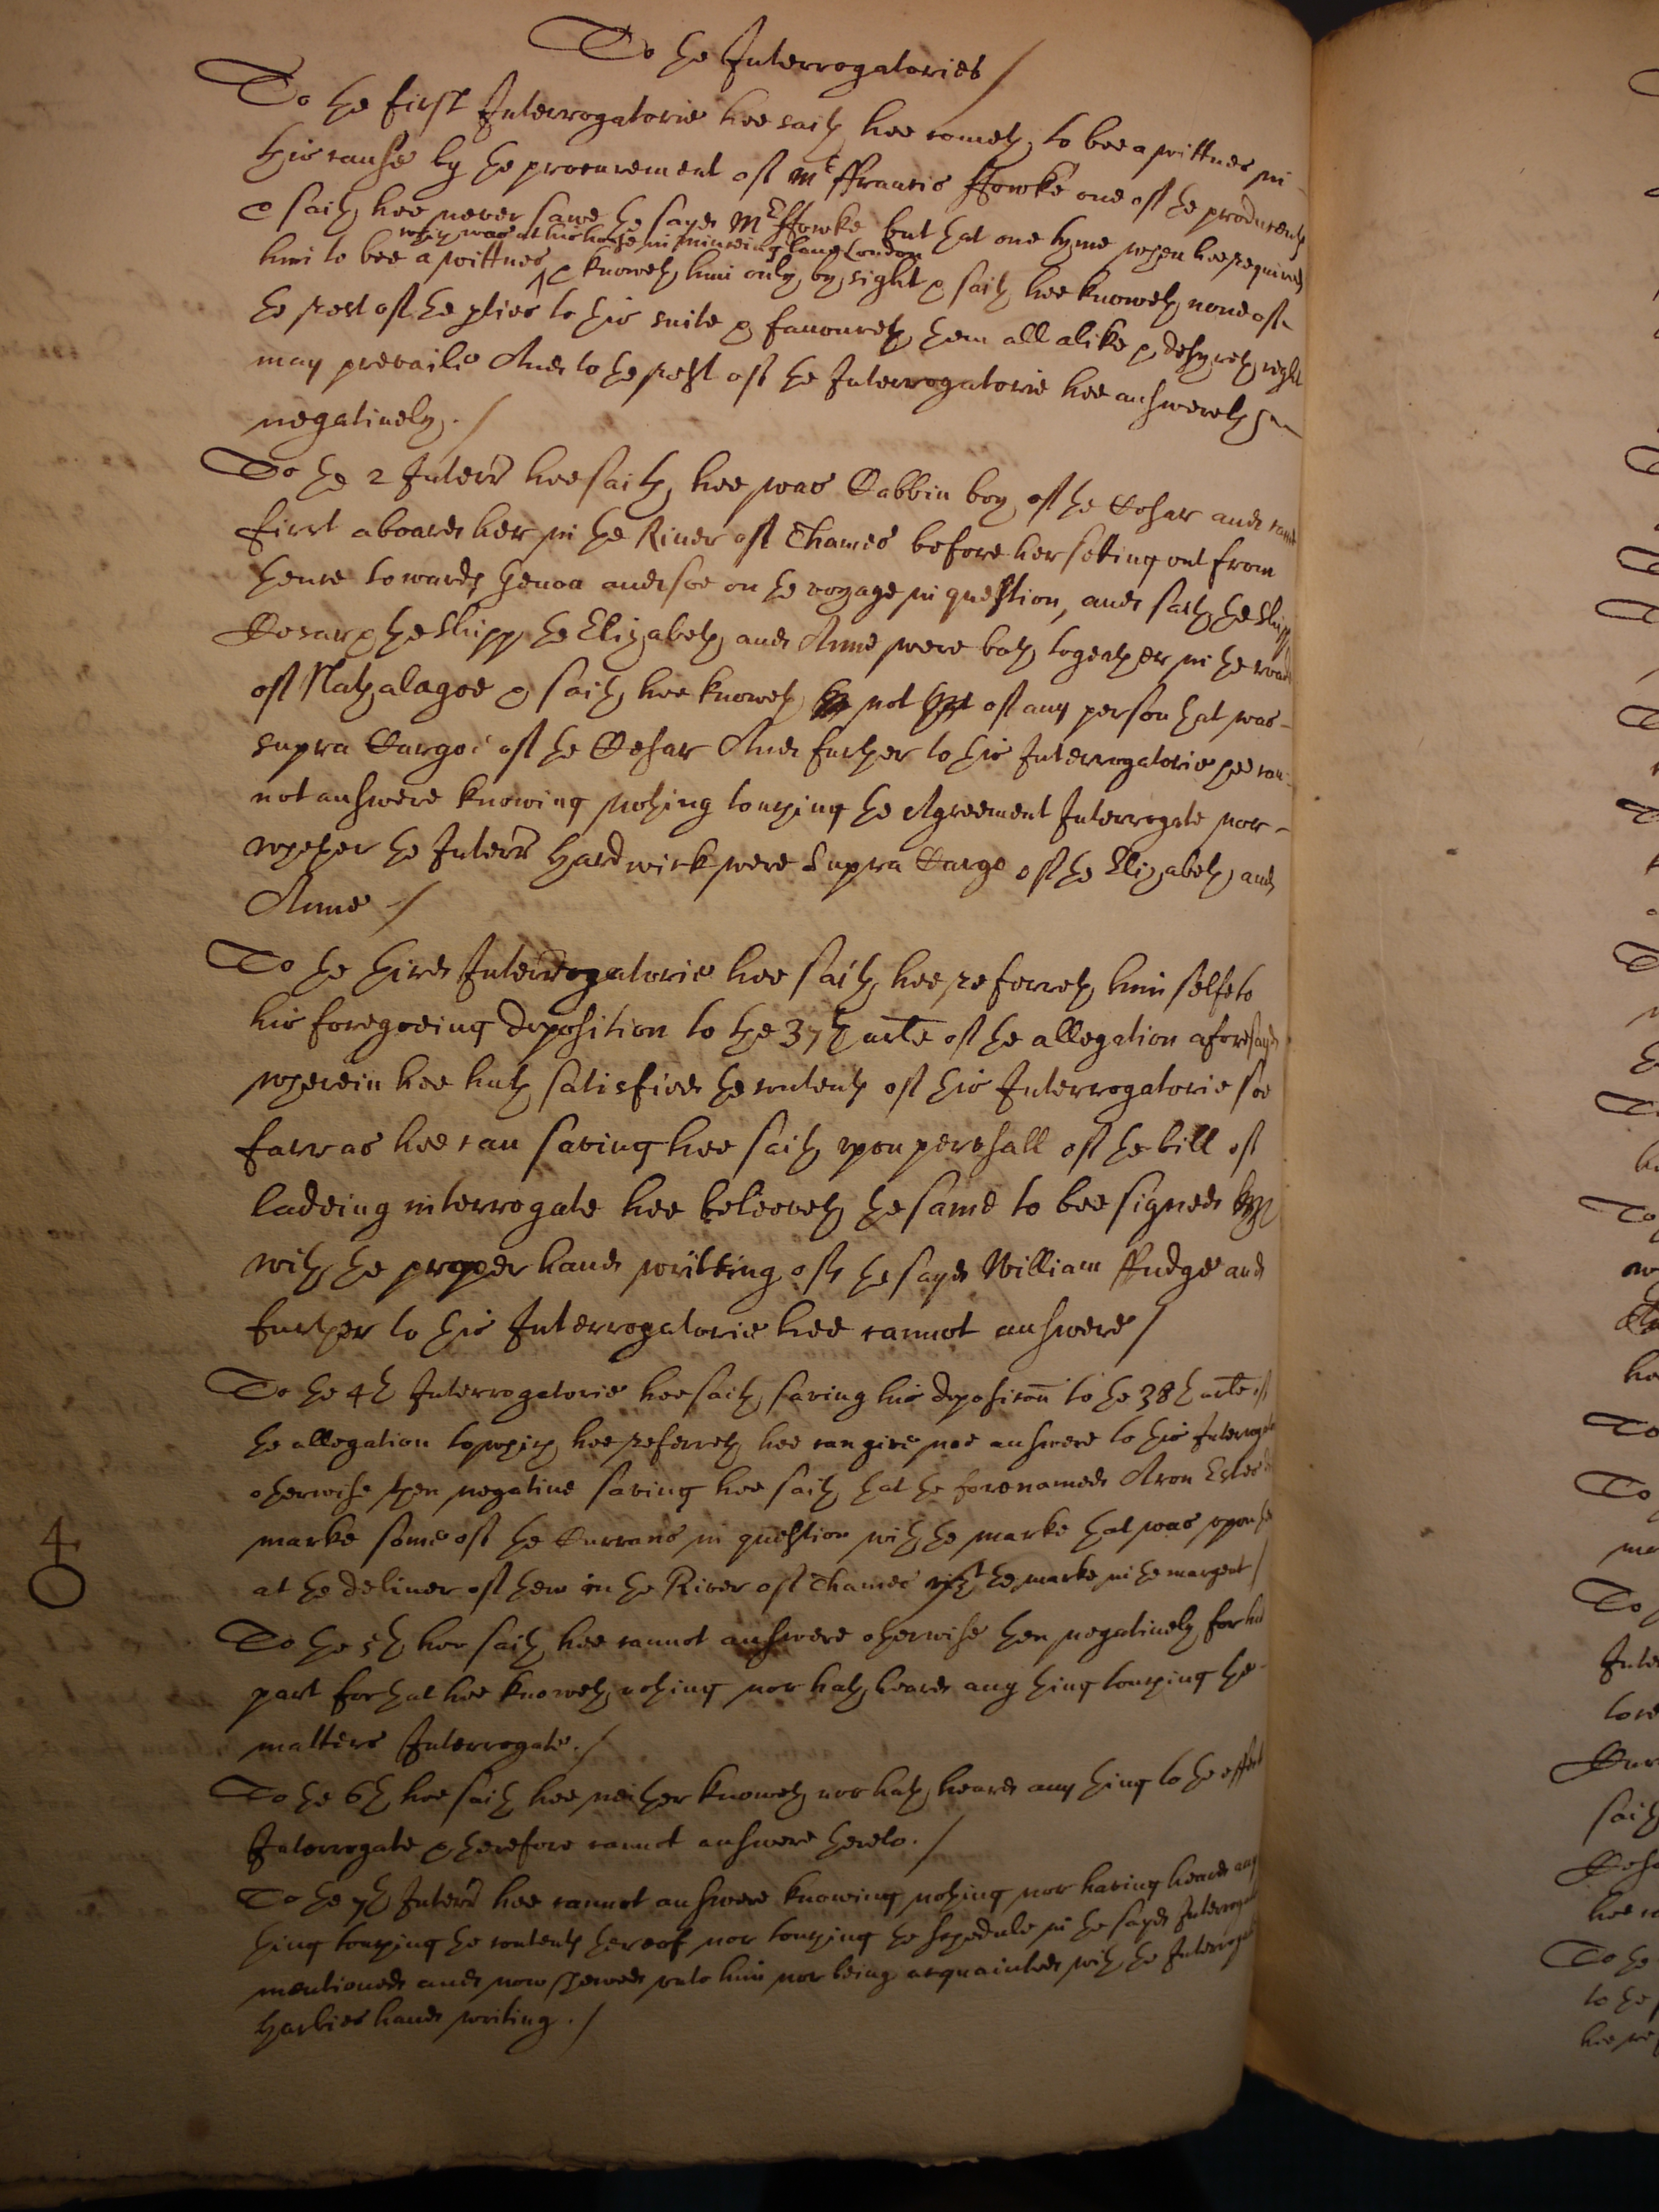 To the Interrogatories /
To the first Interrogatorie hee saith hee cometh to bee a wittnes in
this cause by the procurement of Mr ffrancis ffowke one of the producents
& saith hee never sawe the sayd Mr ffowke but that one tyme when hee required
which was at his house in minceing lane London
him to bee a wittnes ^ & knoweth him only by sight & saith hee knoweth none of
the rest of the p̱ties to this suite & favoureth them all alike & desyreth right
may prevaile And to the rest of the Interrogatorie hee answereth
negatively. /
To the 2 Interr hee saith hee was Cabbin boy of the Cesar and came
first aboard her in the River of Thames before her setting out from
thence towards Genoa and soe on the voyage in question, and saith the Shipp
Cesar & the Shipp the Elizabeth and Anne were both together in the roade
of Nathalagoe & saith hee knoweth not of any person that was
supra Cargoe of the Cesar And further to this Interrogatorie hee can
not answere knowing nothing touching the Agreement Interrogate nor
whether the Interr Hardwick were Supra Cargo of the Elizabeth and
Anne /
To the third Interrogatorie hee saith hee referreth him selfe to
his foregoeing deposition to the 37th arte of the allegation aforesayd
wherein hee hath satisfied the contents of this Interrogatorie soe
farr as hee can saving hee saith upon perusall of the bill of
ladeing interrogate hee beleeveth the same to bee signed
with the proper hand writting of the sayd William ffudge and
further to this Interrogatorie hee cannot answere /
To the 4th Interrogatorie hee saith saving his deposicon to the 38th arte of
the allegation to which hee referreth hee can give noe answere to this Interrogate
otherwise then negative saving hee saith that the forenamed Aron Estes did
marke some of the Currans in question with the marke that was upon the
at the deliver of them in the River of Thames vizt the marke in the margent /
4
O
To the 5th hee saith hee cannot answere otherwise then negatively for his
part for that hee knoweth nothing nor hath heard any thing touching the
matters Interrogate. /
To the 6th hee saith hee neither knoweth nor hath heard any thing to the effect
Interrogate & therefore cannot answere thereto. /
To the 7th Interr hee cannot answere knowing nothing nor having heard any
thing touching the contents thereof nor touching the schedule in the sayd Interrogate
mentioned and now shewed unto him nor being acquainted with the Interrogate
Harbies hand writing. /